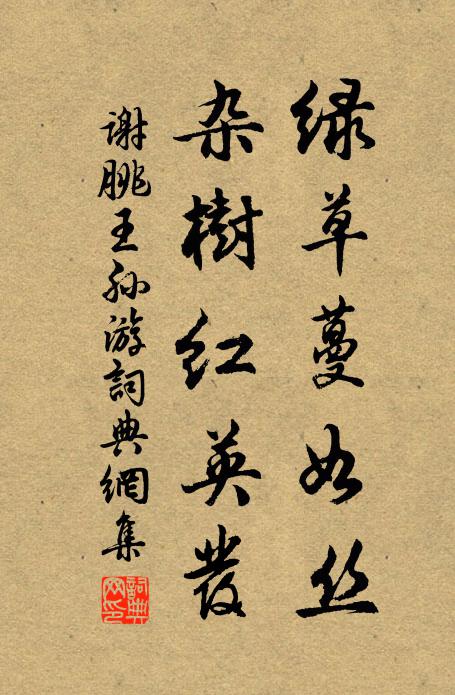 绿草蔓如丝
杂樹红英發
谢朓王孙游詞典網集
詞典网印